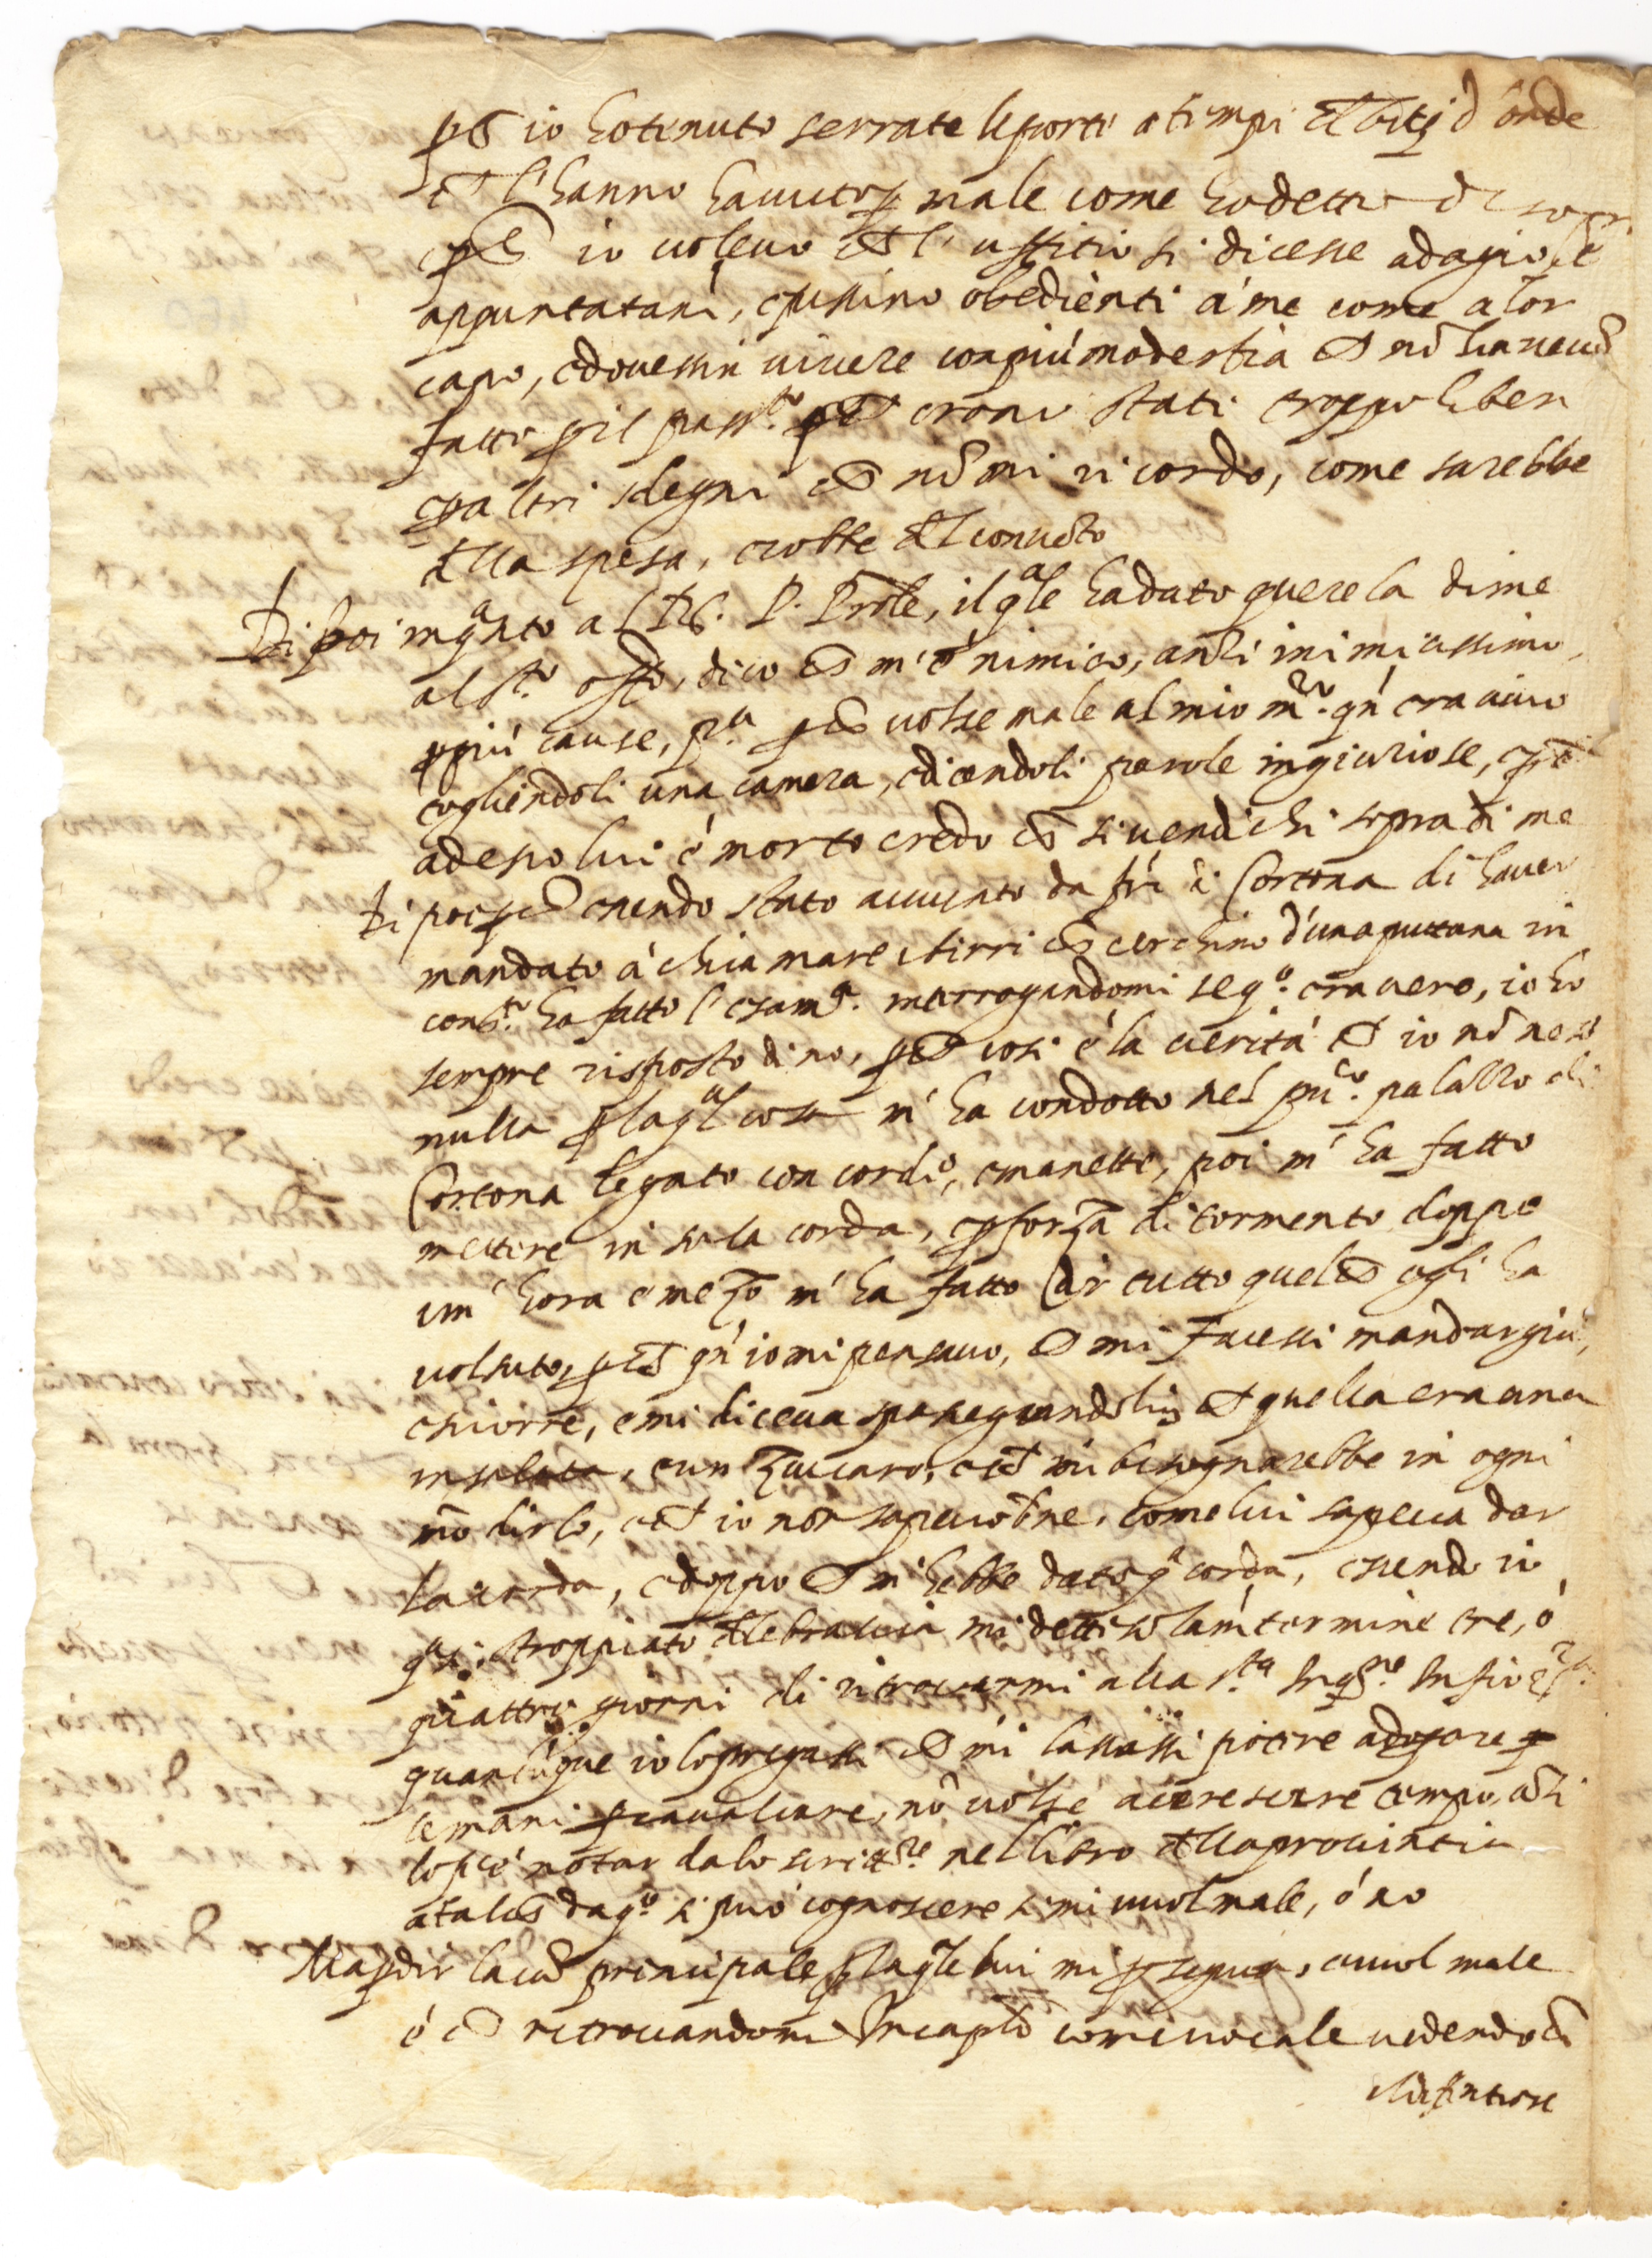 p che io ho tenuto serrate le porti a tempi debiti, d onde
che l'hanno havuto p male come ho detto di sopra
p che io volevo che l'uffitio si dicesse adagio, et
appuntatam, e fussino obedienti à me come a lor
capo, e dovessin vivere con più modestia che nō havevō
fatto p il pass.to p che erano stati troppo liberi
e p altri sdegni che nō mi ricordo, come sarebbe
della spesa, e robbe del convēto
Di poi in q.anto al R. P. Prōle, il q.ale ha dato querela di me
al s.to offō, dico che m'è nimico, anzi inimicissimo,
p più cause, p.a p che volse male al mio m.ro qn̄ era vivo
togliendoli una camera, e dicendoli parole ingiuriose, e p che
adesso lui è morto credo che si vendichi sopra di me
Di poi p che essendo stato accusato da frī di Cortona di haver
mandato à chiamare sbirri che cerchino d'una puttana in
conv.to ha fatto l'esam.e interrogandomi se q.o era vero, io ho
sempre risposto di no, p che cosi è la verità che io nō ne so
nulla p la q.al cosa m'ha condotto nel pu.co palazzo di
Cortona legato con corde, e manette, poi m'ha fatto
mettere in su la corda, e p forza di tormento doppo
un' hora e mezo m'ha fatto dir tutto quel che egli ha
volsuto, p che qn̄ io mi pensavo, che mi facessi mandar giù,
e sciorre, e mi diceva passeggiandoli che quella era una
insalata, e un zuccaro, e che mi bisognarebbe in ogni
mō dirlo, e che io non sapevo bne, come lui sapeva dar
la corda, e doppo che m'hebbe dato q.a corda, essendo io
q.si stroppiato delle braccia mi dette solam termine tre, ò
quattro giorni di ritrovarmi alla s.ta Inq.ne In
quantunque io lo pregassi che mi lassassi potere adoprare
le mani p cavalcare, nō volse accrescere tempo, azi
lo fece notar dalo scritt.re nel libro della provintia
a tal che da q.o si può cognoscere se mi vuol male, ò no
Ma p dir la cā principale p la q.le lui mi p seguita, e vuol male
è che ritrovandomi In caplō come vocale vedendo che